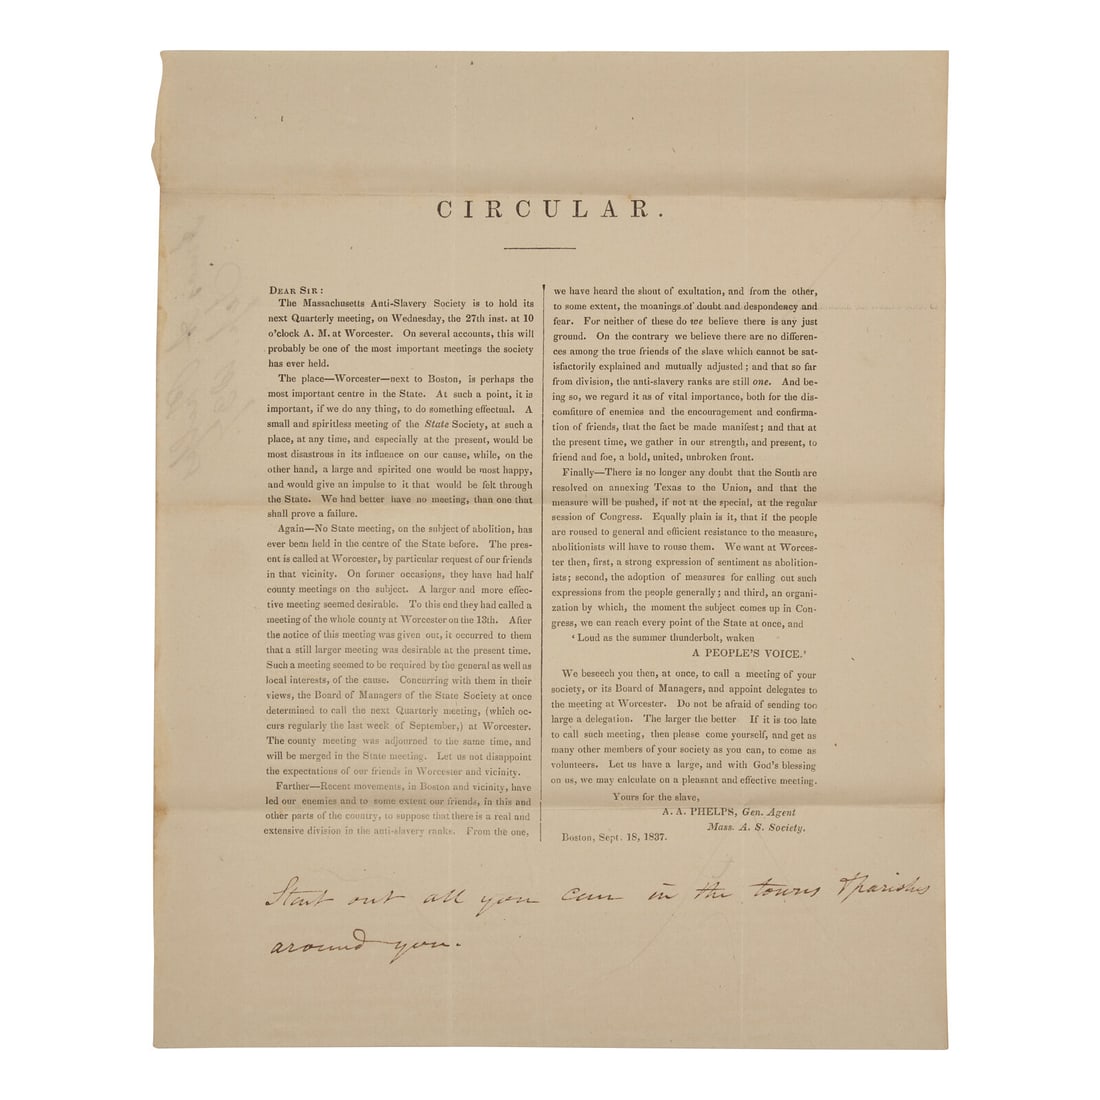 CIRCULAR.
DEAR SIR:
The Massachusetts Anti-Slavery Society is to hold its
next Quarterly meeting, on Wednesday, the 27th inst. at 10
o'clock A. M. at Worcester. On several accounts, this will
probably be one of the most important meetings the society
has ever held.
The place—Worcester—next to Boston, is perhaps the
most important centre in the State. At such a point, it is
important, if we do any thing, to do something effectual. A
small and spiritless meeting of the State Society, at such a
place, at any time, and especially at the present, would be
most disastrous in its influence on our cause, while, on the
other hand, a large and spirited one would be most happy,
and would give an impulse to it that would be felt through
the State. We had better have no meeting, than one that
shall prove a failure.
Again—No State meeting, on the subject of abolition, has
ever been held in the centre of the State before. The pres-
ent is called at Worcester, by particular request of our friends
in that vicinity. On former occasions, they have had half
county meetings on the subject. A larger and more effec-
tive meeting seemed desirable. To this end they had called a
meeting of the whole county at Worcester on the 13th. After
the notice of this meeting was given out, it occurred to them
that a still larger meeting was desirable at the present time.
Such a meeting seemed to be required by the general as well as
local interests, of the cause. Concurring with them in their
views, the Board of Managers of the State Society at once
determined to call the next Quarterly meeting, (which oc-
curs regularly the last week of September,) at Worcester.
The county meeting was adjourned to the same time, and
will be merged in the State meeting. Let us not disappoint
the expectations of our friends in Worcester and vicinity.
Farther—Recent movements, in Boston and vicinity, have
led our enemies and to some extent our friends, in this and
other parts of the country, to suppose that there is a real and
extensive division in the anti-slavery ranks. From the one,
we have heard the shout of exultation, and from the other,
to some extent, the moanings of doubt and despondency and
fear. For neither of these do we believe there is any just
ground. On the contrary we believe there are no differen-
ces among the true friends of the slave which cannot be sat-
isfactorily explained and mutually adjusted; and that so far
from division, the anti-slavery ranks are still one. And be-
ing so, we regard it as of vital importance, both for the dis-
comfiture of enemies and the encouragement and confirma-
tion of friends, that the fact be made manifest; and that at
the present time, we gather in our strength, and present, to
friend and foe, a bold, united, unbroken front.
Finally—There is no longer any doubt that the South are
resolved on annexing Texas to the Union, and that the
measure will be pushed, if not at the special, at the regular
session of Congress. Equally plain is it, that if the people
are roused to general and efficient resistance to the measure,
abolitionists will have to rouse them. We want at Worces-
ter then, first, a strong expression of sentiment as abolition-
ists; second, the adoption of measures for calling out such
expressions from the people generally; and third, an organi-
zation by which, the moment the subject comes up in Con-
gress, we can reach every point of the State at once, and
'Loud as the summer thunderbolt, waken
A PEOPLE'S VOICE.'
We beseech you then, at once, to call a meeting of your
society, or its Board of Managers, and appoint delegates to
the meeting at Worcester. Do not be afraid of sending too
large a delegation. The larger the better If it is too late
to call such meeting, then please come yourself, and get as
many other members of your society as you can, to come as
volunteers. Let us have a large, and with God's blessing
on us, we may calculate on a pleasant and effective meeting.
Yours for the slave,
A. A. PHELPS, Gen. Agent
Mass. A. S. Society.
Boston, Sept. 18, 1837.
Start out all you can in the towns & parishes
around you.